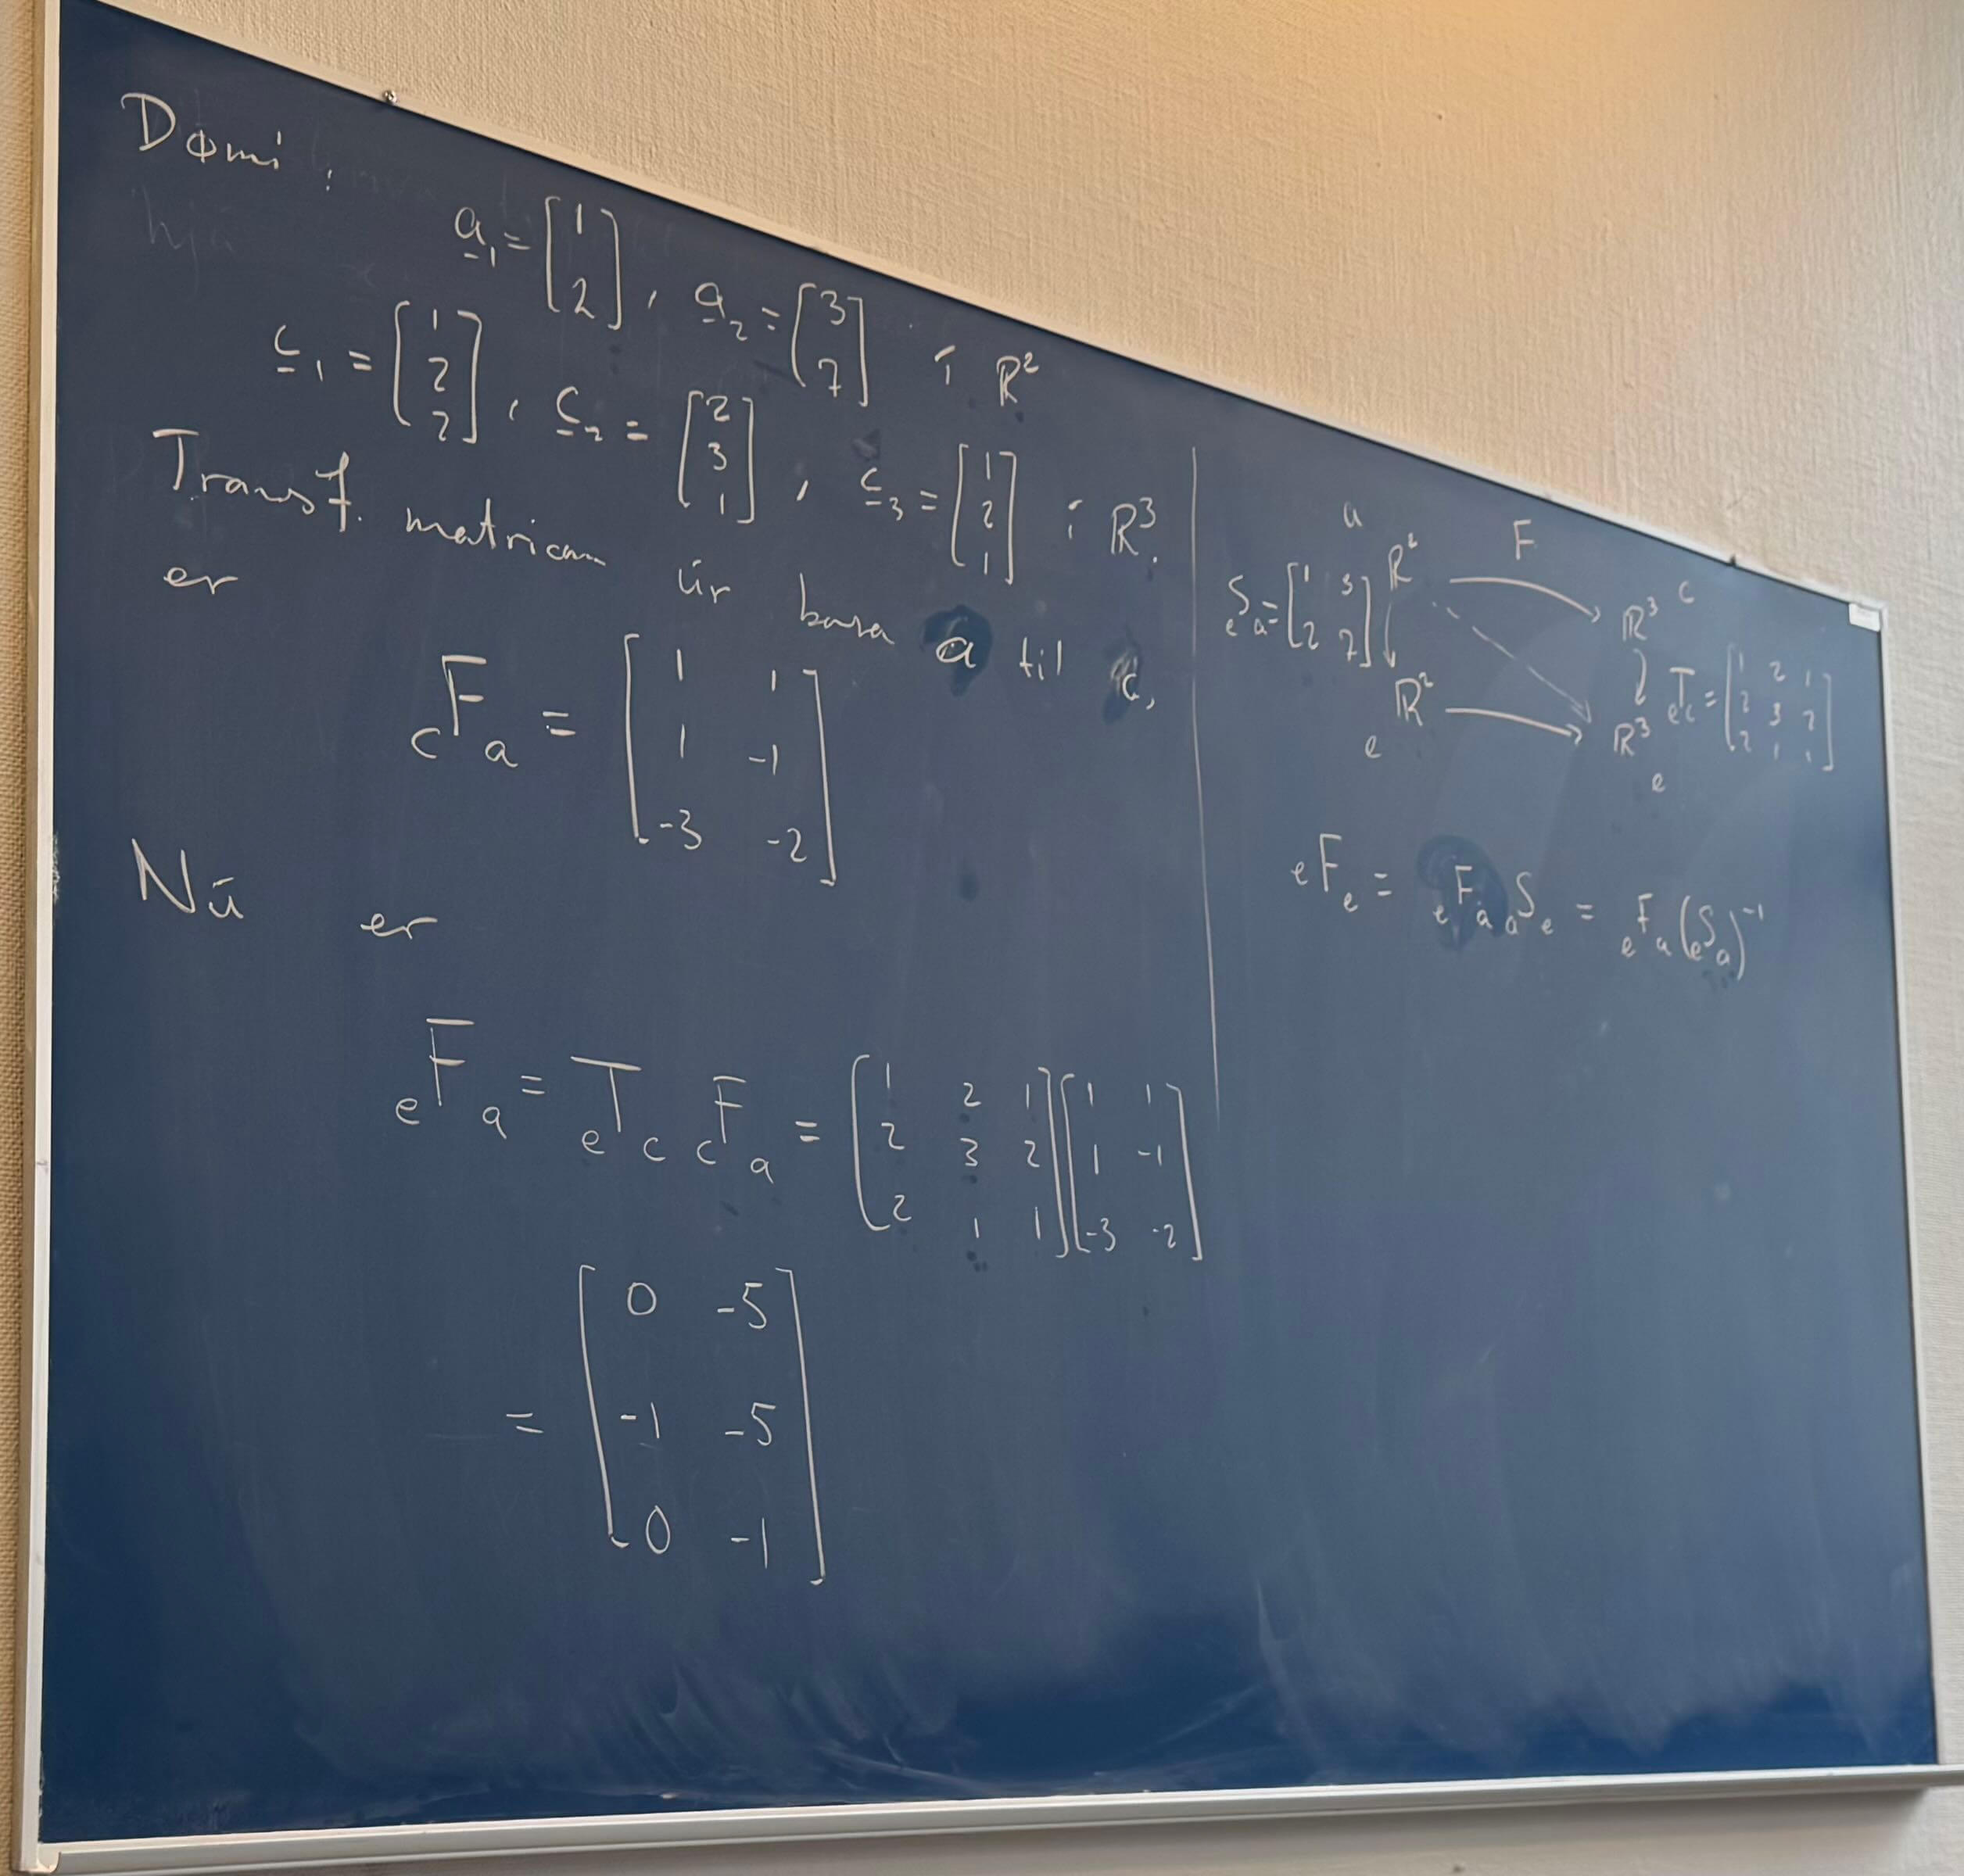 Dømi:
a₁ = [1; 2], a₂ = [3; 7] í ℝ²
c₁ = [1; 2; 2], c₂ = [2; 3; 1], c₃ = [1; 2; 1] í ℝ³.
Transf. matrican úr basa a til c,
er
cFa = [1 1; 1 -1; -3 -2]
Nú er
eFa = eTc cFa = [1 2 1; 2 3 2; 2 1 1] [1 1; 1 -1; -3 -2]
= [0 -5; -1 -5; 0 -1]
a ℝ² F → ℝ³ c
eSa = [1 3; 2 7]
eTc = [1 2 1; 2 3 2; 2 1 1]
e ℝ² → ℝ³ e
eFe = eFa aSe = eFa (eSa)⁻¹